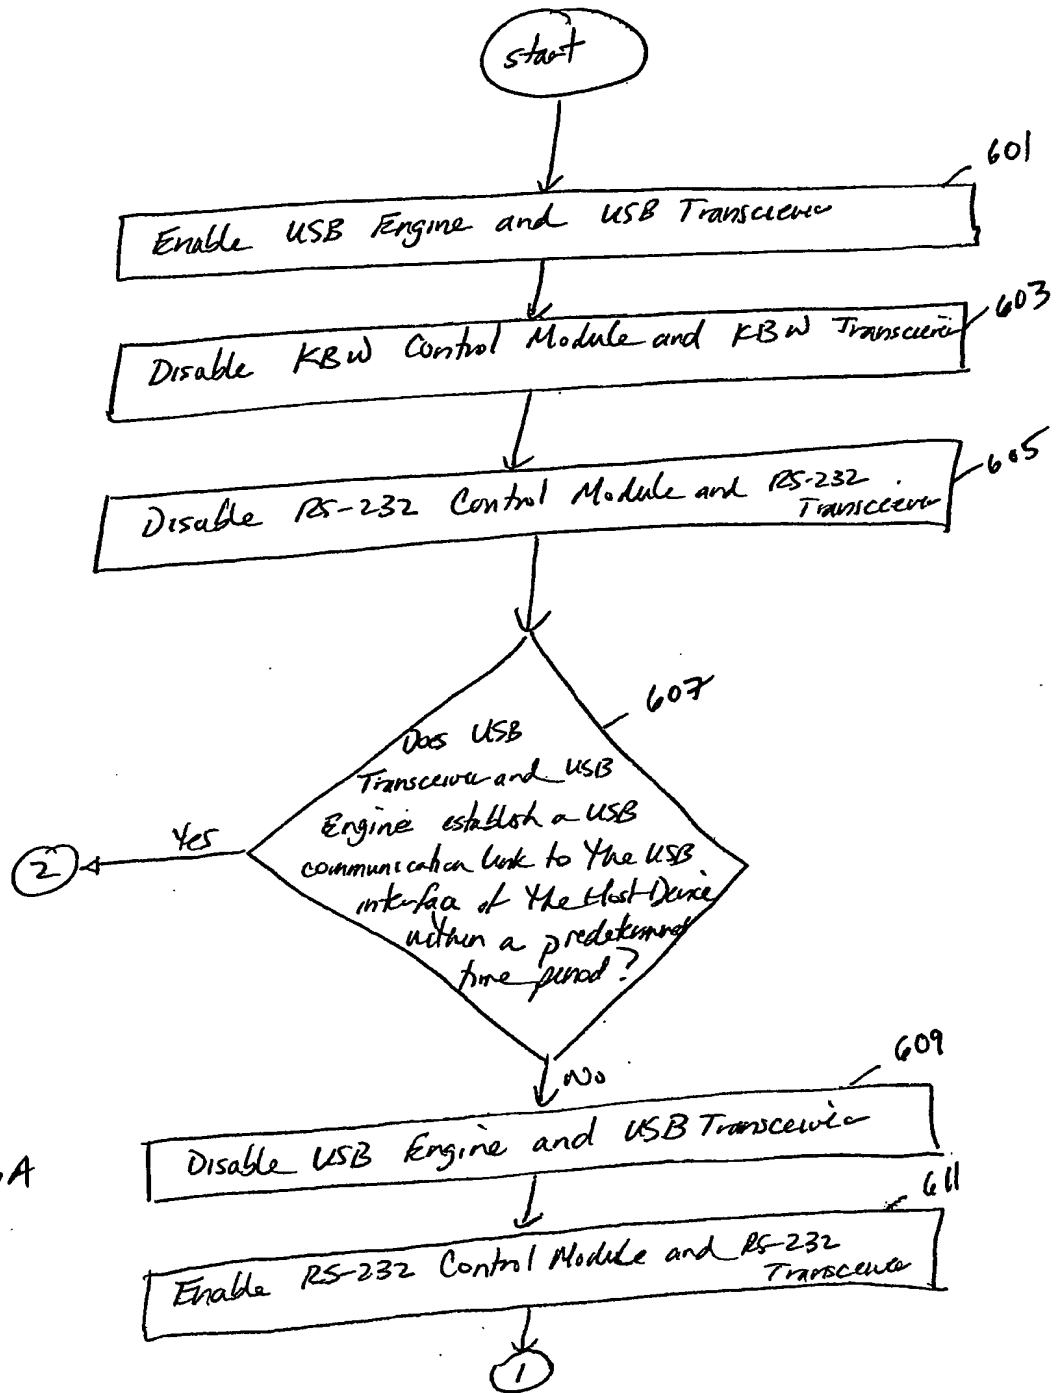 start
601
Enable USB Engine and USB Transceiver
603
Disable KBW Control Module and KBW Transceiver
605
Disable RS-232 Control Module and RS-232
Transceiver
607
Does USB
Transceiver and USB
Engine establish a USB
communication link to the USB
interface of the Host Device
within a predetermined
time period?
Yes
2
No
609
Disable USB Engine and USB Transceiver
6A
611
Enable RS-232 Control Module and RS-232
Transceiver
1